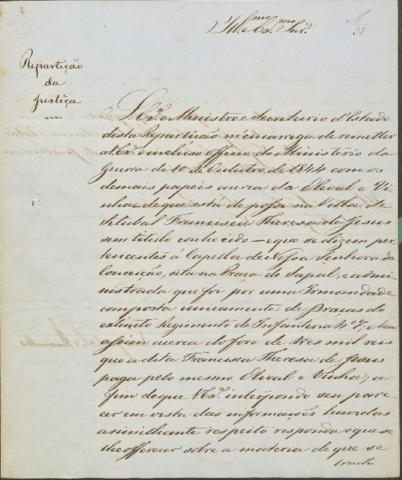 Ill.mo e Ex.mo Snr.
Repartição
da
Justiça
O Ex.o Ministro e Secretario d'Estado
desta Repartição m'encarrega de remetter
a V.Ex.a o incluso officio do Ministerio da
Guerra de 10 de Outubro de 1844 com os
demais papeis acerca do Olival e Vi-
nha de que está de posse na Villa de
Setubal Francisca Thereza de Jesus
sem titulo conhecido — e que se dizem per-
tencentes á Capella de Nossa Senhora da
Conceição, sita na Praça do Sapal, e admi-
nistrada que foi por uma Irmandade
composta unicamente de Praças do
extincto Regimento de Infanteria N.º 7, e bem
assim acerca do foro de tres mil reis
que a dita Francisca Thereza de Jesus
paga pelo mesmo Olival e Vinha; a
fim de que V.Ex.a interpondo seu pare-
cer em vista das informações havidas
a similhante respeito responda o que se
lhe offerecer sobre a materia de que se